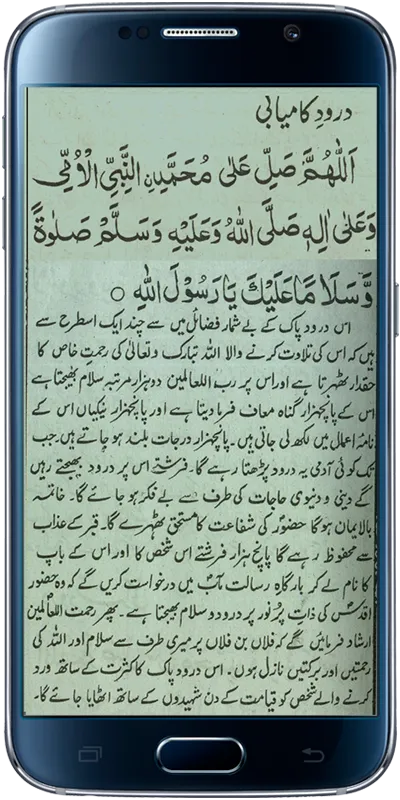 درودِ کامیابی
اَللّٰهُمَّ صَلِّ عَلٰى مُحَمَّدِنِ النَّبِيِّ الْاُمِّيِّ
وَعَلٰى اٰلِهٖ صَلَّى اللّٰهُ وَعَلَيْهِ وَسَلَّمْ صَلٰوةً
وَّسَلَا مَا عَلَيْكَ يَا رَسُوْلَ اللّٰهِ ○
اس درود پاک کے بے شمار فضائل میں سے چند ایک اسطرح سے
ہیں کہ اس کی تلاوت کرنے والا اللہ تبارک وتعالیٰ کی رحمتِ خاص کا
حقدار ٹھہرتا ہے اور اس پر رب اللعالمین دو ہزار مرتبہ سلام بھیجتا ہے
اس کے پانچہزار گناہ معاف فرما دیتا ہے اور پانچہزار نیکیاں اس کے
نامۂ اعمال میں لکھ لی جاتی ہیں۔ پانچہزار درجات بلند ہو جاتے ہیں۔ جب
تک کوئی آدمی یہ درود پڑھتا رہے گا۔ فرشتے اس پر درود بھیجتے رہیں
گے دینی و دنیوی حاجات کی طرف سے بے فکر ہو جائے گا۔ خاتمہ
بالایمان ہوگا حضورؐ کی شفاعت کا مستحق ٹھہرے گا۔ قبر کے عذاب
سے محفوظ رہے گا پانچ ہزار فرشتے اس شخص کا اور اس کے باپ
کا نام لے کر بارگاہِ رسالت مآبؐ میں درخواست کریں گے کہ وہ حضور
اقدسؐ کی ذاتِ پُرنور پر درود و سلام بھیجتا ہے۔ پھر رحمت اللعالمینؐ
ارشاد فرمائیں گے کہ فلاں بن فلاں پر میری طرف سے سلام اور اللہ کی
رحمتیں اور برکتیں نازل ہوں۔ اس درود پاک کا کثرت کے ساتھ ورد
کرنے والے شخص کو قیامت کے دن شہیدوں کے ساتھ اٹھایا جائے گا۔